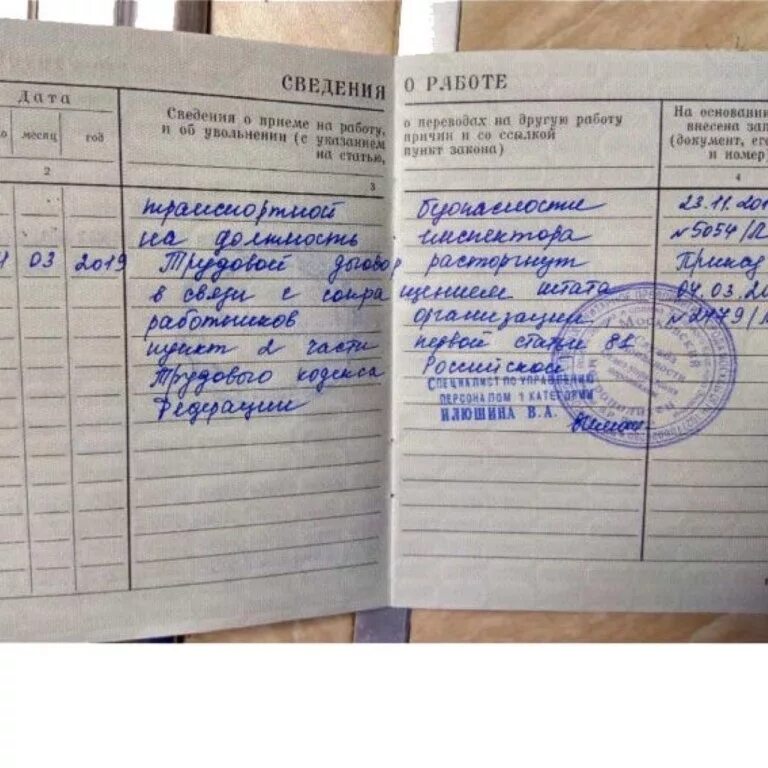 СВЕДЕНИЯ О РАБОТЕ
Дата
Сведения о приеме на работу, о переводах на другую работу
и об увольнении (с указанием причин и со ссылкой
на статью, пункт закона)
На основании
внесена
(документ, его
и номер)
месяц год
2 3 4
транспортной безопасности 23.11.201
на должность инспектора №5054/Л
03 2019 Трудовой договор расторгнут Приказ
в связи с сокращением штата 04.03.20
работников организации №2479/
пункт 2 части первой статьи 81
Трудового кодекса Российской
Федерации
СПЕЦИАЛИСТ ПО УПРАВЛЕНИЮ
ПЕРСОНАЛОМ 1 КАТЕГОРИИ
ИЛЮШИНА В.А.